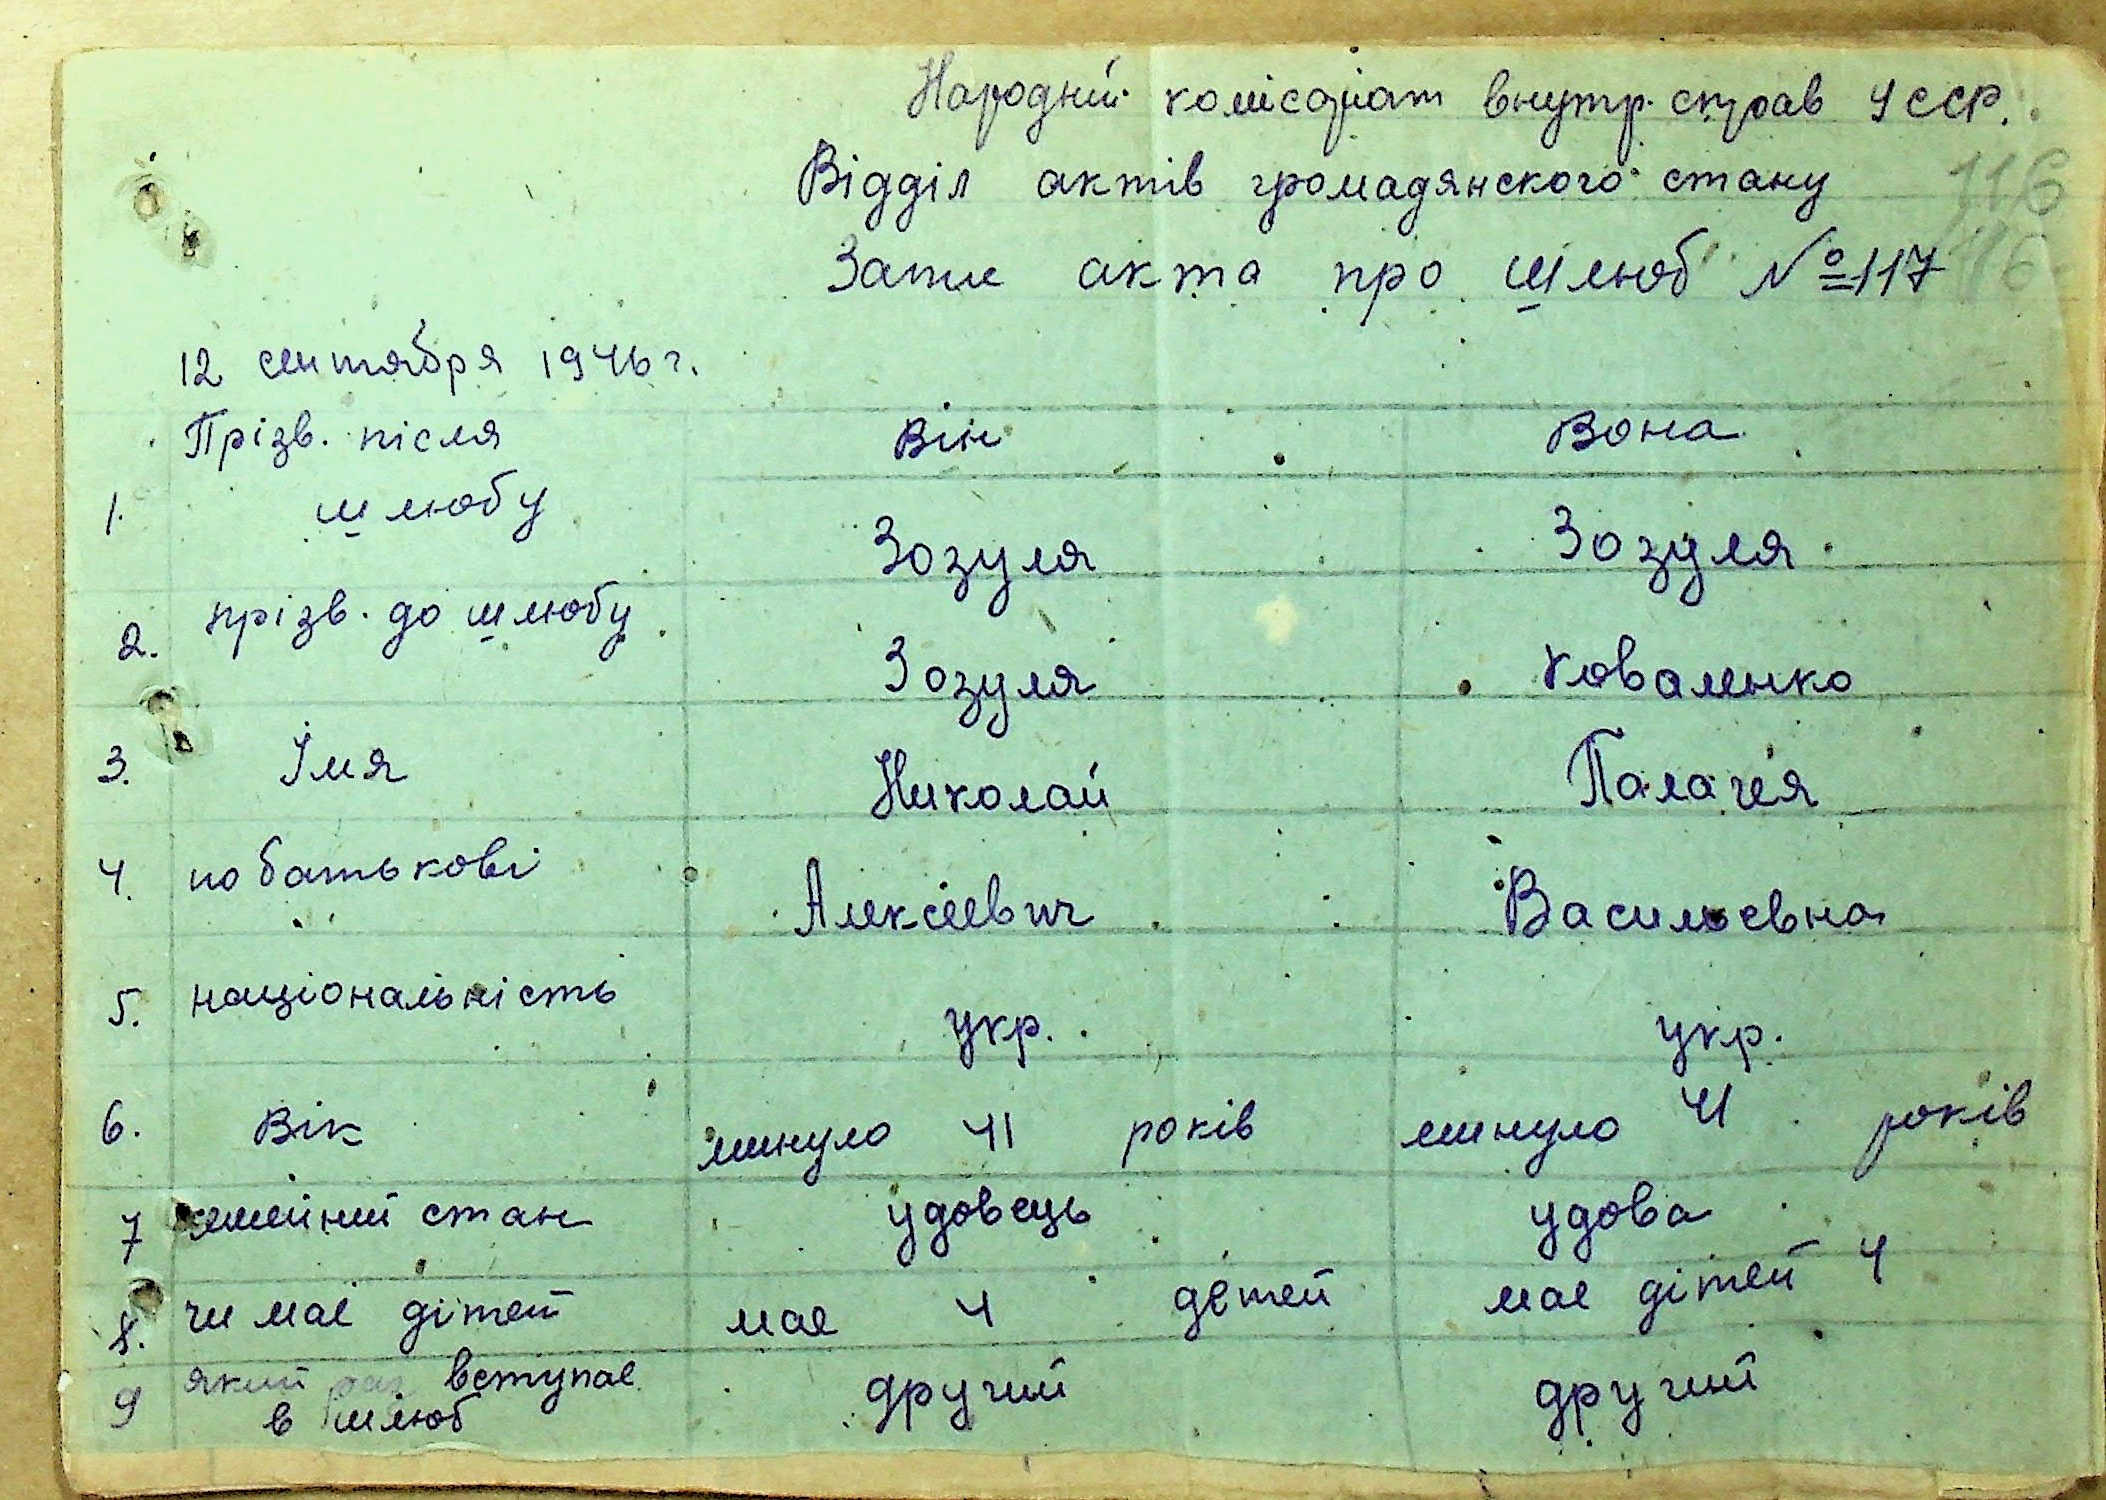 Народній комісаріат внутр. справ УССР.
Відділ актів громадянского стану
116
Запис акта про шлюб № 117
116
12 сентября 1946 г.
Прізв. після Він Вона
1. шлюбу Зозуля Зозуля
2. прізв. до шлюбу Зозуля Коваленко
3. Імя Николай Палагея
4. по батькові Алексеевич Васильевна
5. національність укр. укр.
6. Вік минуло 41 років минуло 41 років
7 семейний стан удовець удова
8. чи має дітей має 4 детей має дітей 4
9 який раз вступає другий другий
в шлюб